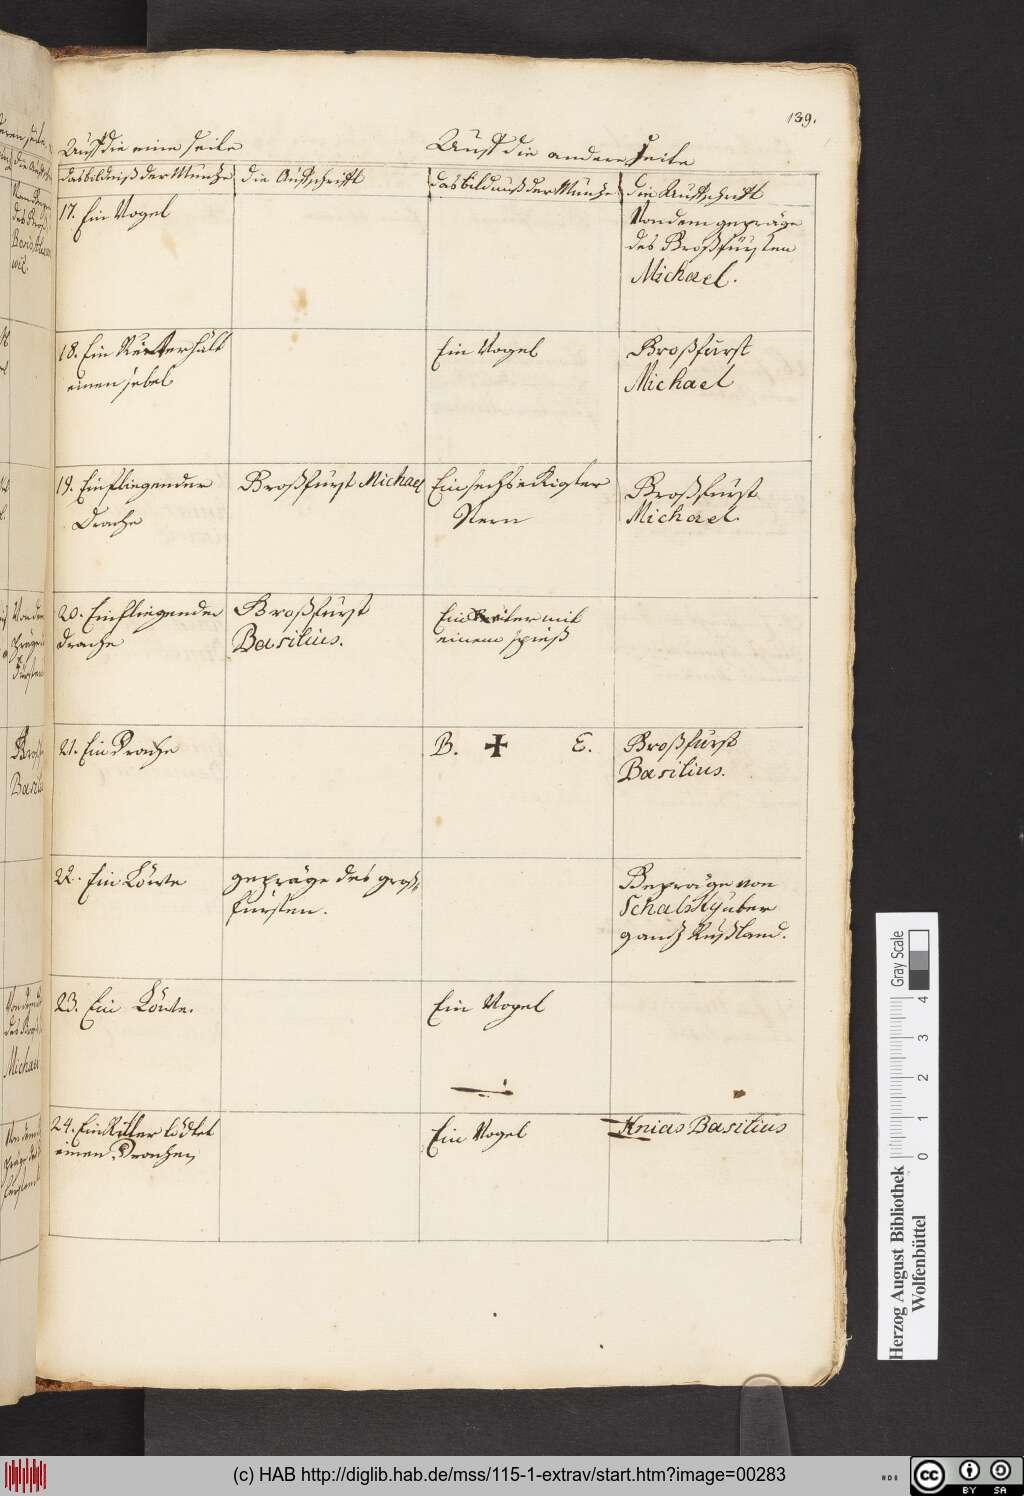 139.
Auff die eine seite
Auff die andere Seite
das bildniß der Müntze
die Auffschrifft
das bildnüß der Müntze
die Auffschrifft
17. Ein Vogel
Von dem gepräge
des Großfürsten
Michael.
18. Ein Reitter hält
einen sebel
Ein Vogel
Großfürst
Michael
19. Ein fliegender
Drache
Großfürst Michael
Ein sechseckigter
Stern
Großfürst
Michael
20. Ein fliegender
drache
Großfürst
Basilius.
Ein Reiter mit
einem spieß
21. Ein Drache
B. ✚ E.
Großfürst
Basilius.
22. Ein Löwe
gepräge des groß-
fürsten.
Gepräge von
über
gantz Rußland.
23. Ein Löwe.
Ein Vogel
24. Ein Ritter tödtet
einen Drachen
Ein Vogel
Knias Basilius
Gray Scale
0 1 2 3 4
Herzog August Bibliothek
Wolfenbüttel
(c) HAB http://diglib.hab.de/mss/115-1-extrav/start.htm?image=00283
cc BY SA